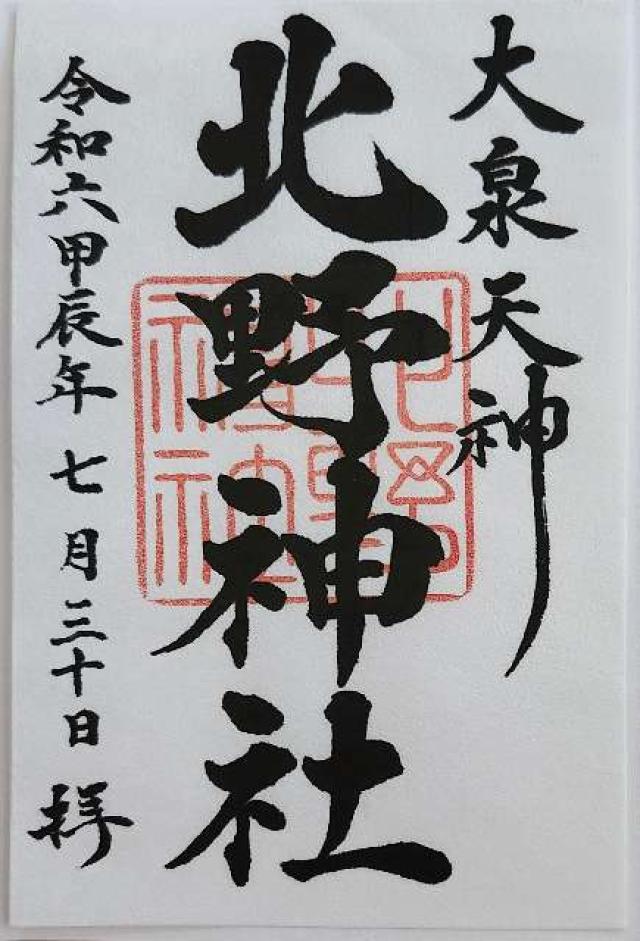 大泉天神
北野神社
令和六甲辰年七月三十日拝